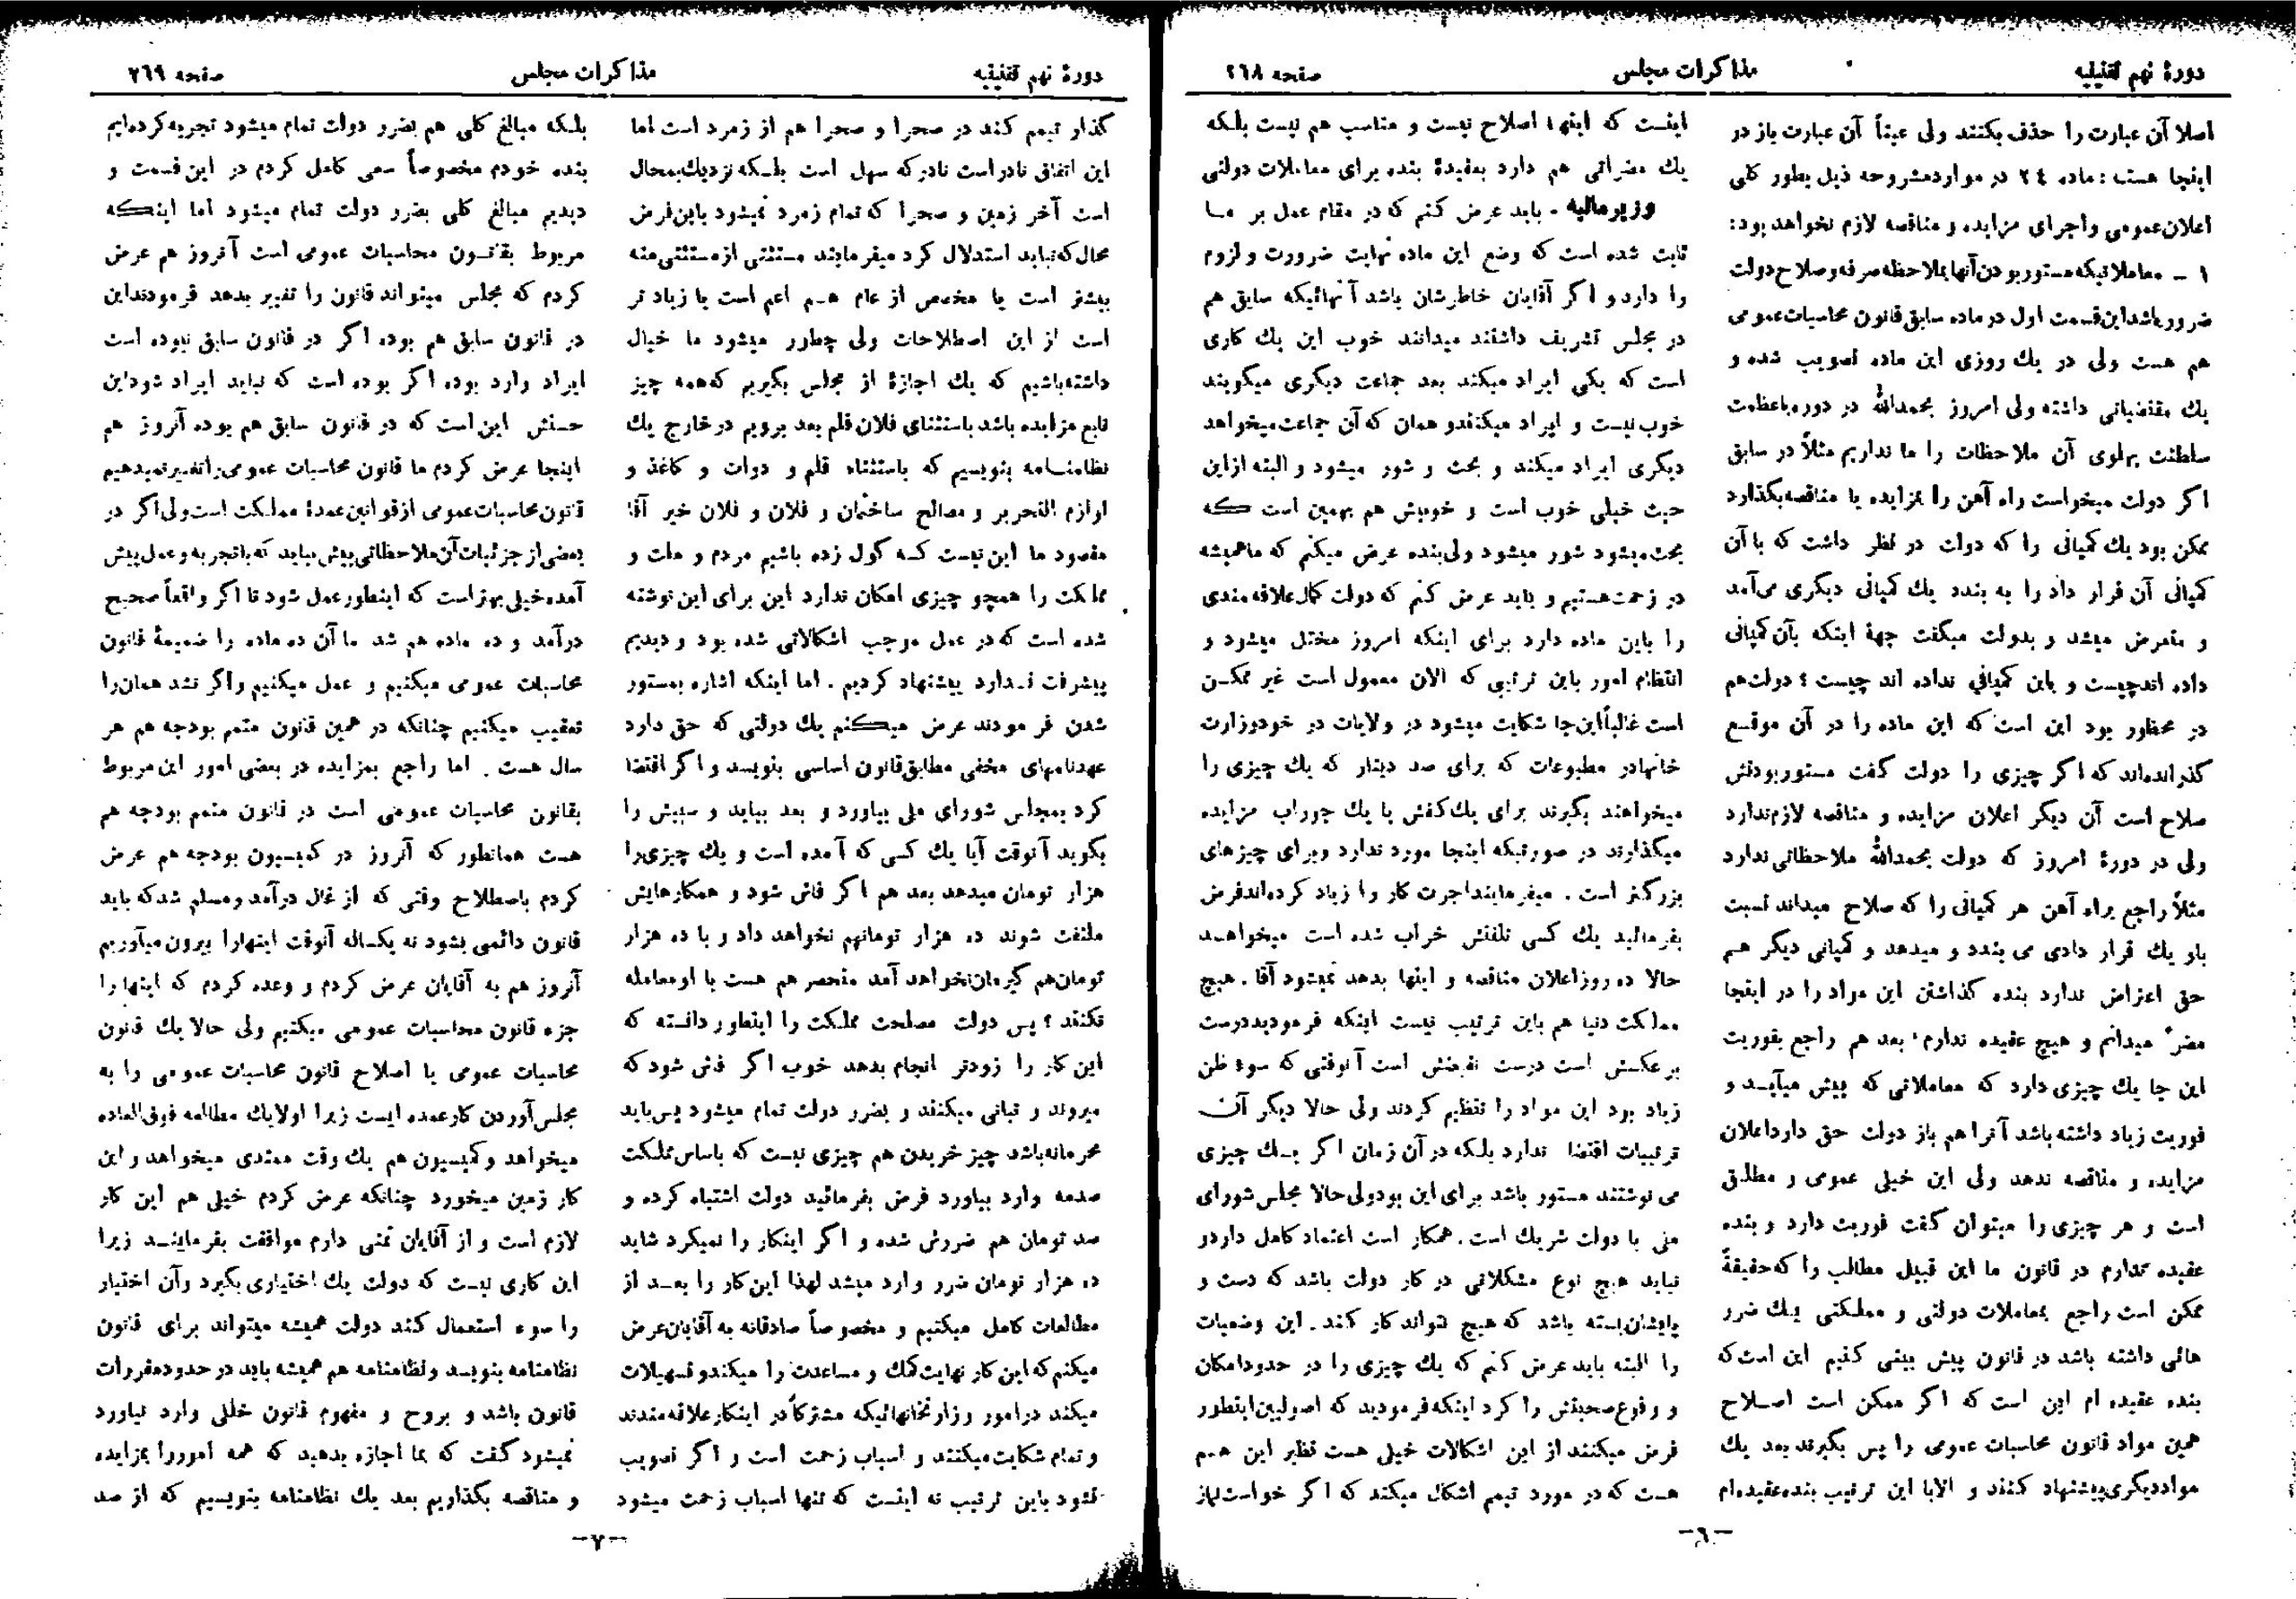 دورهٔ نهم تقنینیه
مذاکرات مجلس
صفحه ۲۶۸
اصلا آن عبارت را حذف بکنند ولی عیناً آن عبارت باز در
اینجا هست : ماده ۲۴ در موارد مشروحه ذیل بطور کلی
اعلان عمومی و اجرای مزایده و مناقصه لازم نخواهد بود :
۱ - معاملاتیکه مستور بودن آنها بملاحظه صرفه و صلاح دولت
ضرور باشد این قسمت اول در ماده سابق قانون محاسبات عمومی
هم هست ولی در یك روزی این ماده تصویب شده و
یك مقتضیاتی داشته ولی امروز بحمدالله در دوره باعظمت
سلطنت پهلوی آن ملاحظات را ما نداریم مثلاً در سابق
اگر دولت میخواست راه آهن را بمزایده یا مناقصه بگذارد
ممکن بود یك کمپانی را که دولت در نظر داشت که با آن
کمپانی آن قرار داد را به بندد یك کمپانی دیگری می‌آمد
و متعرض میشد و بدولت میگفت جهة اینکه بآن کمپانی
داده اند چیست و باین کمپانی نداده اند چیست ؟ دولت هم
در محظور بود این است که این ماده را در آن موقع
گذرانده‌اند که اگر چیزی را دولت گفت مستور بودنش
صلاح است آن دیگر اعلان مزایده و مناقصه لازم ندارد
ولی در دورهٔ امروز که دولت بحمدالله ملاحظاتی ندارد
مثلاً راجع براه آهن هر کمپانی را که صلاح میداند نسبت
باو یك قرار دادی می بندد و میدهد و کمپانی دیگر هم
حق اعتراض ندارد بنده گذاشتن این مواد را در اینجا
مضرّ میدانم و هیچ عقیده ندارم ' بعد هم راجع بفوریت
این جا یك چیزی دارد که معاملاتی که پیش میآید و
فوریت زیاد داشته باشد آنرا هم باز دولت حق دارد اعلان
مزایده و مناقصه ندهد ولی این خیلی عمومی و مطلق
است و هر چیزی را میتوان گفت فوریت دارد و بنده
عقیده ندارم در قانون ما این قبیل مطالب را که حقیقةً
ممکن است راجع بمعاملات دولتی و مملکتی یك ضرر
هائی داشته باشد در قانون پیش بینی کنیم این است که
بنده عقیده ام این است که اگر ممکن است اصلاح
همین مواد قانون محاسبات عمومی را پس بگیرند بعد یك
مواد دیگری پیشنهاد کنند و الا با این ترتیب بنده عقیده‌ام
اینست که اینها اصلاح نیست و مناسب هم نیست بلکه
یك مضراتی هم دارد بعقیدهٔ بنده برای معاملات دولتی
وزیر مالیه - باید عرض کنم که در مقام عمل بر ما
ثابت شده است که وضع این ماده نهایت ضرورت و لزوم
را دارد و اگر آقایان خاطرشان باشد آنهائیکه سابق هم
در مجلس تشریف داشتند میدانند خوب این یك کاری
است که یکی ایراد میکند بعد جماعت دیگری میگویند
خوب نیست و ایراد میکنند و همان که آن جماعت میخواهد
دیگری ایراد میکند و بحث و شور میشود و البته از این
حیث خیلی خوب است و خوبیش هم بهمین است که
بحث میشود شور میشود ولی بنده عرض میکنم که ما همیشه
در زحمت هستیم و باید عرض کنم که دولت کمال علاقه مندی
را باین ماده دارد برای اینکه امروز مختل میشود و
انتظام امور باین ترتیبی که الان معمول است غیر ممکن
است غالباً این جا شکایت میشود در ولایات در خود وزارت
خانها در مطبوعات که برای صد دینار که یك چیزی را
میخواهند بگیرند برای یك کفش یا یك جوراب مزایده
میگذارند در صورتیکه اینجا مورد ندارد و برای چیزهای
بزرگتر است . میفرمایند اجرت کار را زیاد کرده‌اند فرض
بفرمائید یك کسی تلفنش خراب شده است میخواهید
حالا ده روز اعلان مناقصه و اینها بدهد نمیشود آقا . هیچ
مملکت دنیا هم باین ترتیب نیست اینکه فرمودید درست
بر عکسش است درست نقیضش است آنوقتی که سوء ظن
زیاد بود این مواد را تنظیم کردند ولی حالا دیگر آن
ترتیبات اقتضا ندارد بلکه در آن زمان اگر یك چیزی
می نوشتند مستور باشد برای این بود ولی حالا مجلس شورای
ملی با دولت شریك است . همکار است اعتماد کامل دارد و
نباید هیچ نوع مشکلاتی در کار دولت باشد که دست و
پایشان بسته باشد که هیچ نتواند کار کند . این وضعیات
را البته باید عرض کنم که یك چیزی را در حدود امکان
و وقوع صحبتش را کرد اینکه فرمودید که اصولیین اینطور
فرض میکنند از این اشکالات خیلی هست نظیر این هم
هست که در مورد تیمم اشکال میکند که اگر خواست نماز
-۶-
دورهٔ نهم تقنینیه
مذاکرات مجلس
صفحه ۲۶۹
گذار تیمم کند در صحرا و صحرا هم از زمرد است اما
این اتفاق نادر است نادر که سهل است بلکه نزدیك بمحال
است آخر زمین و صحرا که تمام زمرد نمیشود باین فرض
محال که نباید استدلال کرد میفرمایند مستثنی از مستثنی منه
بیشتر است یا مخصص از عام هم اعم است یا زیاد تر
است از این اصطلاحات ولی چطور میشود ما خیال
داشته باشیم که یك اجازهٔ از مجلس بگیریم که همه چیز
تابع مزایده باشد باستثنای فلان قلم بعد برویم در خارج یك
نظامنامه بنویسیم که باستثناء قلم و دوات و کاغذ و
لوازم التحریر و مصالح ساختمان و فلان و فلان خیر آقا
مقصود ما این نیست که گول زده باشیم مردم و ملت و
مملکت را همچو چیزی امکان ندارد این برای این نوشته
شده است که در عمل موجب اشکالاتی شده بود و دیدیم
پیشرفت ندارد پیشنهاد کردیم . اما اینکه اشاره بمستور
شدن فر مودند عرض میکنم یك دولتی که حق دارد
عهدنامهای مخفی مطابق قانون اساسی بنویسد و اگر اقتضا
کرد بمجلس شورای ملی بیاورد و بعد بیاید و سببش را
بگوید آنوقت آیا یك کسی که آمده است و یك چیزی را
هزار تومان میدهد بعد هم اگر فاش شود و همکارهایش
ملتفت شوند ده هزار تومانهم نخواهد داد و با ده هزار
تومان هم گیرمان نخواهد آمد منحصر هم هست با او معامله
نکنند ؟ پس دولت مصلحت مملکت را اینطور دانسته که
این کار را زودتر انجام بدهد خوب اگر فاش شود که
میروند و تبانی میکنند و بضرر دولت تمام میشود پس باید
محرمانه باشد چیز خریدن هم چیزی نیست که باساس مملکت
صدمه وارد بیاورد فرض بفرمائید دولت اشتباه کرده و
صد تومان هم ضررش شده و اگر اینکار را نمیکرد شاید
ده هزار تومان ضرر وارد میشد لهذا این کار را بعد از
مطالعات کامل میکنیم و مخصوصاً صادقانه به آقایان عرض
میکنم که این کار نهایت کمك و مساعدت را میکند و تسهیلات
میکند در امور وزارتخانهائیکه مشترکاً در اینکار علاقه مندند
و تمام شکایت میکنند و اسباب زحمت است و اگر تصویب
نشود باین ترتیب نه اینست که تنها اسباب زحمت میشود
بلکه مبالغ کلی هم بضرر دولت تمام میشود تجربه کرده‌ایم
بنده خودم مخصوصاً سعی کامل کردم در این قسمت و
دیدیم مبالغ کلی بضرر دولت تمام میشود اما اینکه
مربوط بقانون محاسبات عمومی است آنروز هم عرض
کردم که مجلس میتواند قانون را تغییر بدهد فرمودند این
در قانون سابق هم بوده اگر در قانون سابق نبوده است
ایراد وارد بود، اگر بوده است که نباید ایراد شود این
حسنش این است که در قانون سابق هم بوده آنروز هم
اینجا عرض کردم ما قانون محاسبات عمومی را تغییر نمیدهیم
قانون محاسبات عمومی از قوانین عمدهٔ مملکت است ولی اگر در
بعضی از جزئیات آن ملاحظاتی پیش بیاید که با تجربه و عمل پیش
آمده خیلی بهتر است که اینطور عمل شود تا اگر واقعاً صحیح
درآمد و ده ماده هم شد ما آن ده ماده را ضمیمهٔ قانون
محاسبات عمومی میکنیم و عمل میکنیم و اگر نشد همان را
تعقیب میکنیم چنانکه در همین قانون متمم بودجه هم هر
سال هست . اما راجع بمزایده در بعضی امور این مربوط
بقانون محاسبات عمومی است در قانون متمم بودجه هم
هست همانطور که آنروز در کمیسیون بودجه هم عرض
کردم باصطلاح وقتی که از غال درآمد و مسلم شد که باید
قانون دائمی بشود نه یکساله آنوقت اینها را بیرون میآوریم
آنروز هم به آقایان عرض کردم و وعده کردم که اینها را
جزء قانون محاسبات عمومی میکنیم ولی حالا یك قانون
محاسبات عمومی یا اصلاح قانون محاسبات عمومی را به
مجلس آوردن کار عمده ایست زیرا اولا یك مطالعه فوق العاده
میخواهد و کمیسیون هم یك وقت ممتدی میخواهد و این
کار زمین میخورد چنانکه عرض کردم خیلی هم این کار
لازم است و از آقایان تمنی دارم موافقت بفرمایند زیرا
این کاری نیست که دولت یك اختیاری بگیرد و آن اختیار
را سوء استعمال کند دولت همیشه میتواند برای قانون
نظامنامه بنویسد و نظامنامه هم همیشه باید در حدود مقررات
قانون باشد و بروح و مفهوم قانون خللی وارد نیاورد
نمیشود گفت که بما اجازه بدهید که همه امور را بمزایده
و مناقصه بگذاریم بعد یك نظامنامه بنویسیم که از صد
-۷-